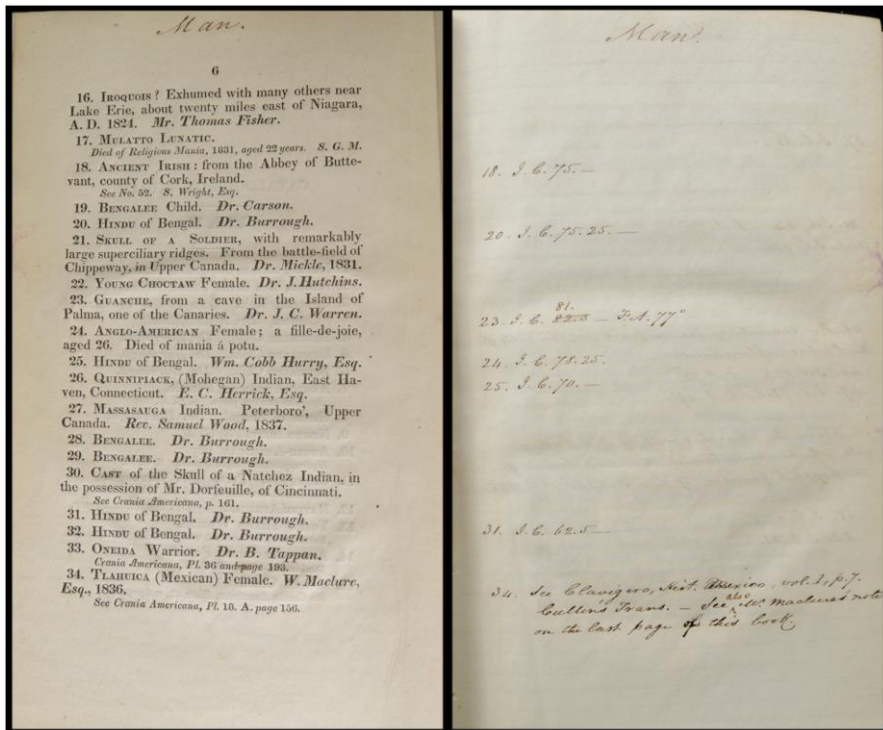 Man.
6
16. IROQUOIS? Exhumed with many others near
Lake Erie, about twenty miles east of Niagara,
A. D. 1824. Mr. Thomas Fisher.
17. MULATTO LUNATIC.
Died of Religious Mania, 1831, aged 22 years. S. G. M.
18. ANCIENT IRISH: from the Abbey of Butte-
vant, county of Cork, Ireland.
See No. 52. S. Wright, Esq.
19. BENGALEE Child. Dr. Carson.
20. HINDU of Bengal. Dr. Burrough.
21. SKULL OF A SOLDIER, with remarkably
large superciliary ridges. From the battle-field of
Chippeway, in Upper Canada. Dr. Mickle, 1831.
22. YOUNG CHOCTAW Female. Dr. J. Hutchins.
23. GUANCHE, from a cave in the Island of
Palma, one of the Canaries. Dr. J. C. Warren.
24. ANGLO-AMERICAN Female; a fille-de-joie,
aged 26. Died of mania á potu.
25. HINDU of Bengal. Wm. Cobb Hurry, Esq.
26. QUINNIPIACK, (Mohegan) Indian, East Ha-
ven, Connecticut. E. C. Herrick, Esq.
27. MASSASAUGA Indian. Peterboro', Upper
Canada. Rev. Samuel Wood, 1837.
28. BENGALEE. Dr. Burrough.
29. BENGALEE. Dr. Burrough.
30. CAST of the Skull of a Natchez Indian, in
the possession of Mr. Dorfeuille, of Cincinnati.
See Crania Americana, p. 161.
31. HINDU of Bengal. Dr. Burrough.
32. HINDU of Bengal. Dr. Burrough.
33. ONEIDA Warrior. Dr. B. Tappan.
Crania Americana, Pl. 36 and page 193.
34. TLAHUICA (Mexican) Female. W. Maclure,
Esq., 1836.
See Crania Americana, Pl. 18. A. page 156.
Man.
18. I. C. 75.—
20. I. C. 75.25.—
81.
23. I. C. 82.5 — F. A. 77°
24. I. C. 78.25.
25. I. C. 70.—
31. I. C. 62.5—
34. See Clavigero, Hist. Mexico, vol. 1, p. 7.
Cullen's Trans. — See also Mr. Maclure's note
on the last page of this book.